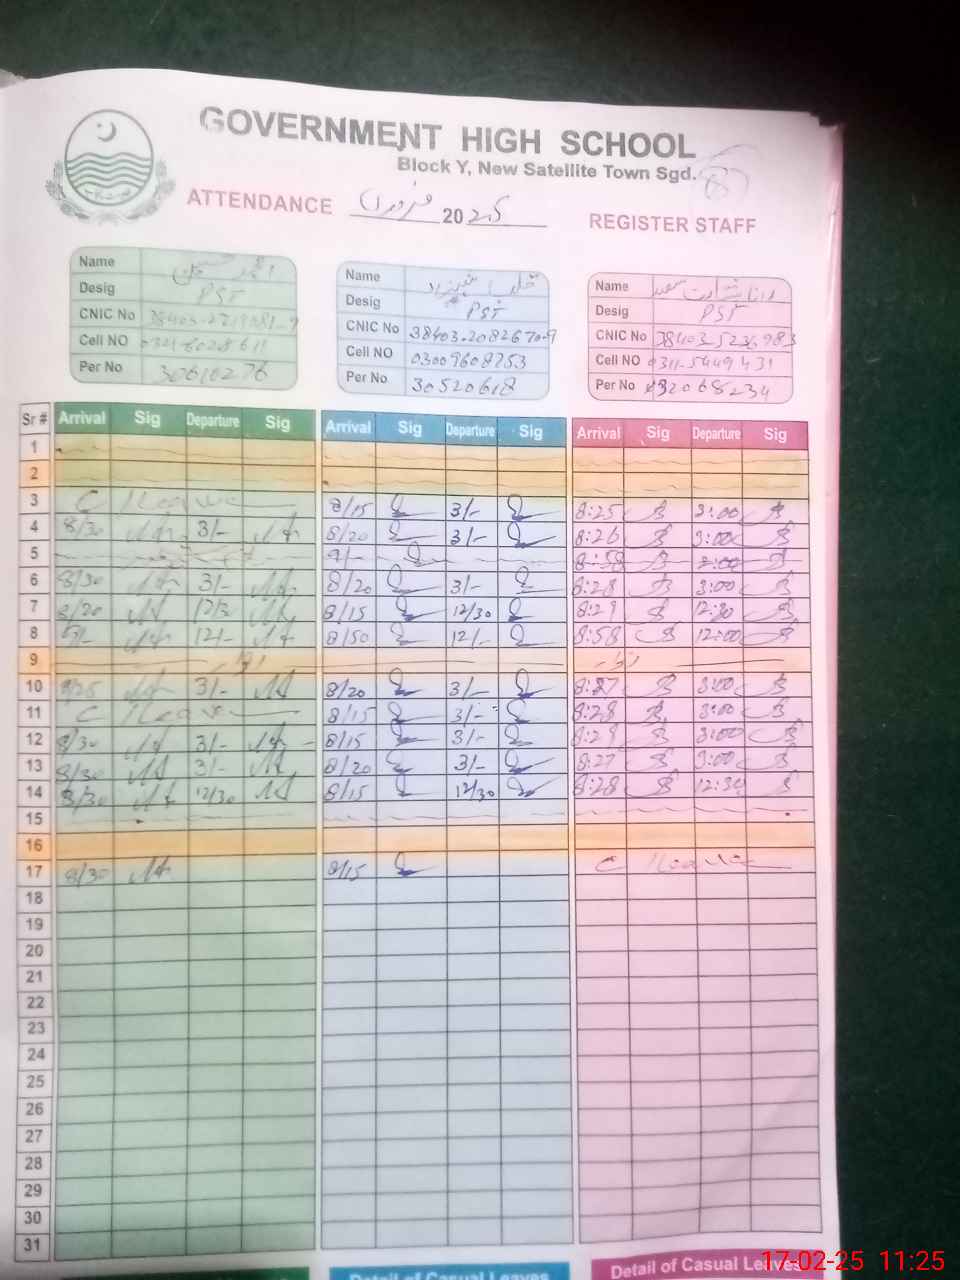 GOVERNMENT HIGH SCHOOL
Block Y, New Satellite Town Sgd.
ATTENDANCE فروری 2025 REGISTER STAFF
Name
Desig PST
CNIC No
Cell NO
Per No 30610276
Name
Desig PST
CNIC No 38403-2082670-9
Cell NO 03009608753
Per No 30520618
Name
Desig PST
CNIC No
Cell NO 0311-5449431
Per No
Sr # Arrival Sig Departure Sig Arrival Sig Departure Sig Arrival Sig Departure Sig
1
2
3 C/Leave 8/15 3/- 8:25 3:00
4 8/30 3/- 8/20 3/- 8:26 3:00
5 9/- 8:58 2:00
6 8/30 3/- 8/20 3/- 8:28 3:00
7 8/20 12/30 8/15 12/30 8:29 12:30
8 9/- 12/- 8/50 12/- 8:58 12:00
9 اتوار اتوار
10 8/25 3/- 8/20 3/- 8:27 3:00
11 C/Leave 8/15 3/- 8:28 3:00
12 8/30 3/- 8/15 3/- 8:29 3:00
13 8/30 3/- 8/20 3/- 8:27 3:00
14 8/30 12/30 8/15 12/30 8:28 12:30
15
16
17 8/30 8/15 C/Leave
18
19
20
21
22
23
24
25
26
27
28
29
30
31
Detail of Casual Leaves Detail of Casual Leaves
17-02-25 11:25